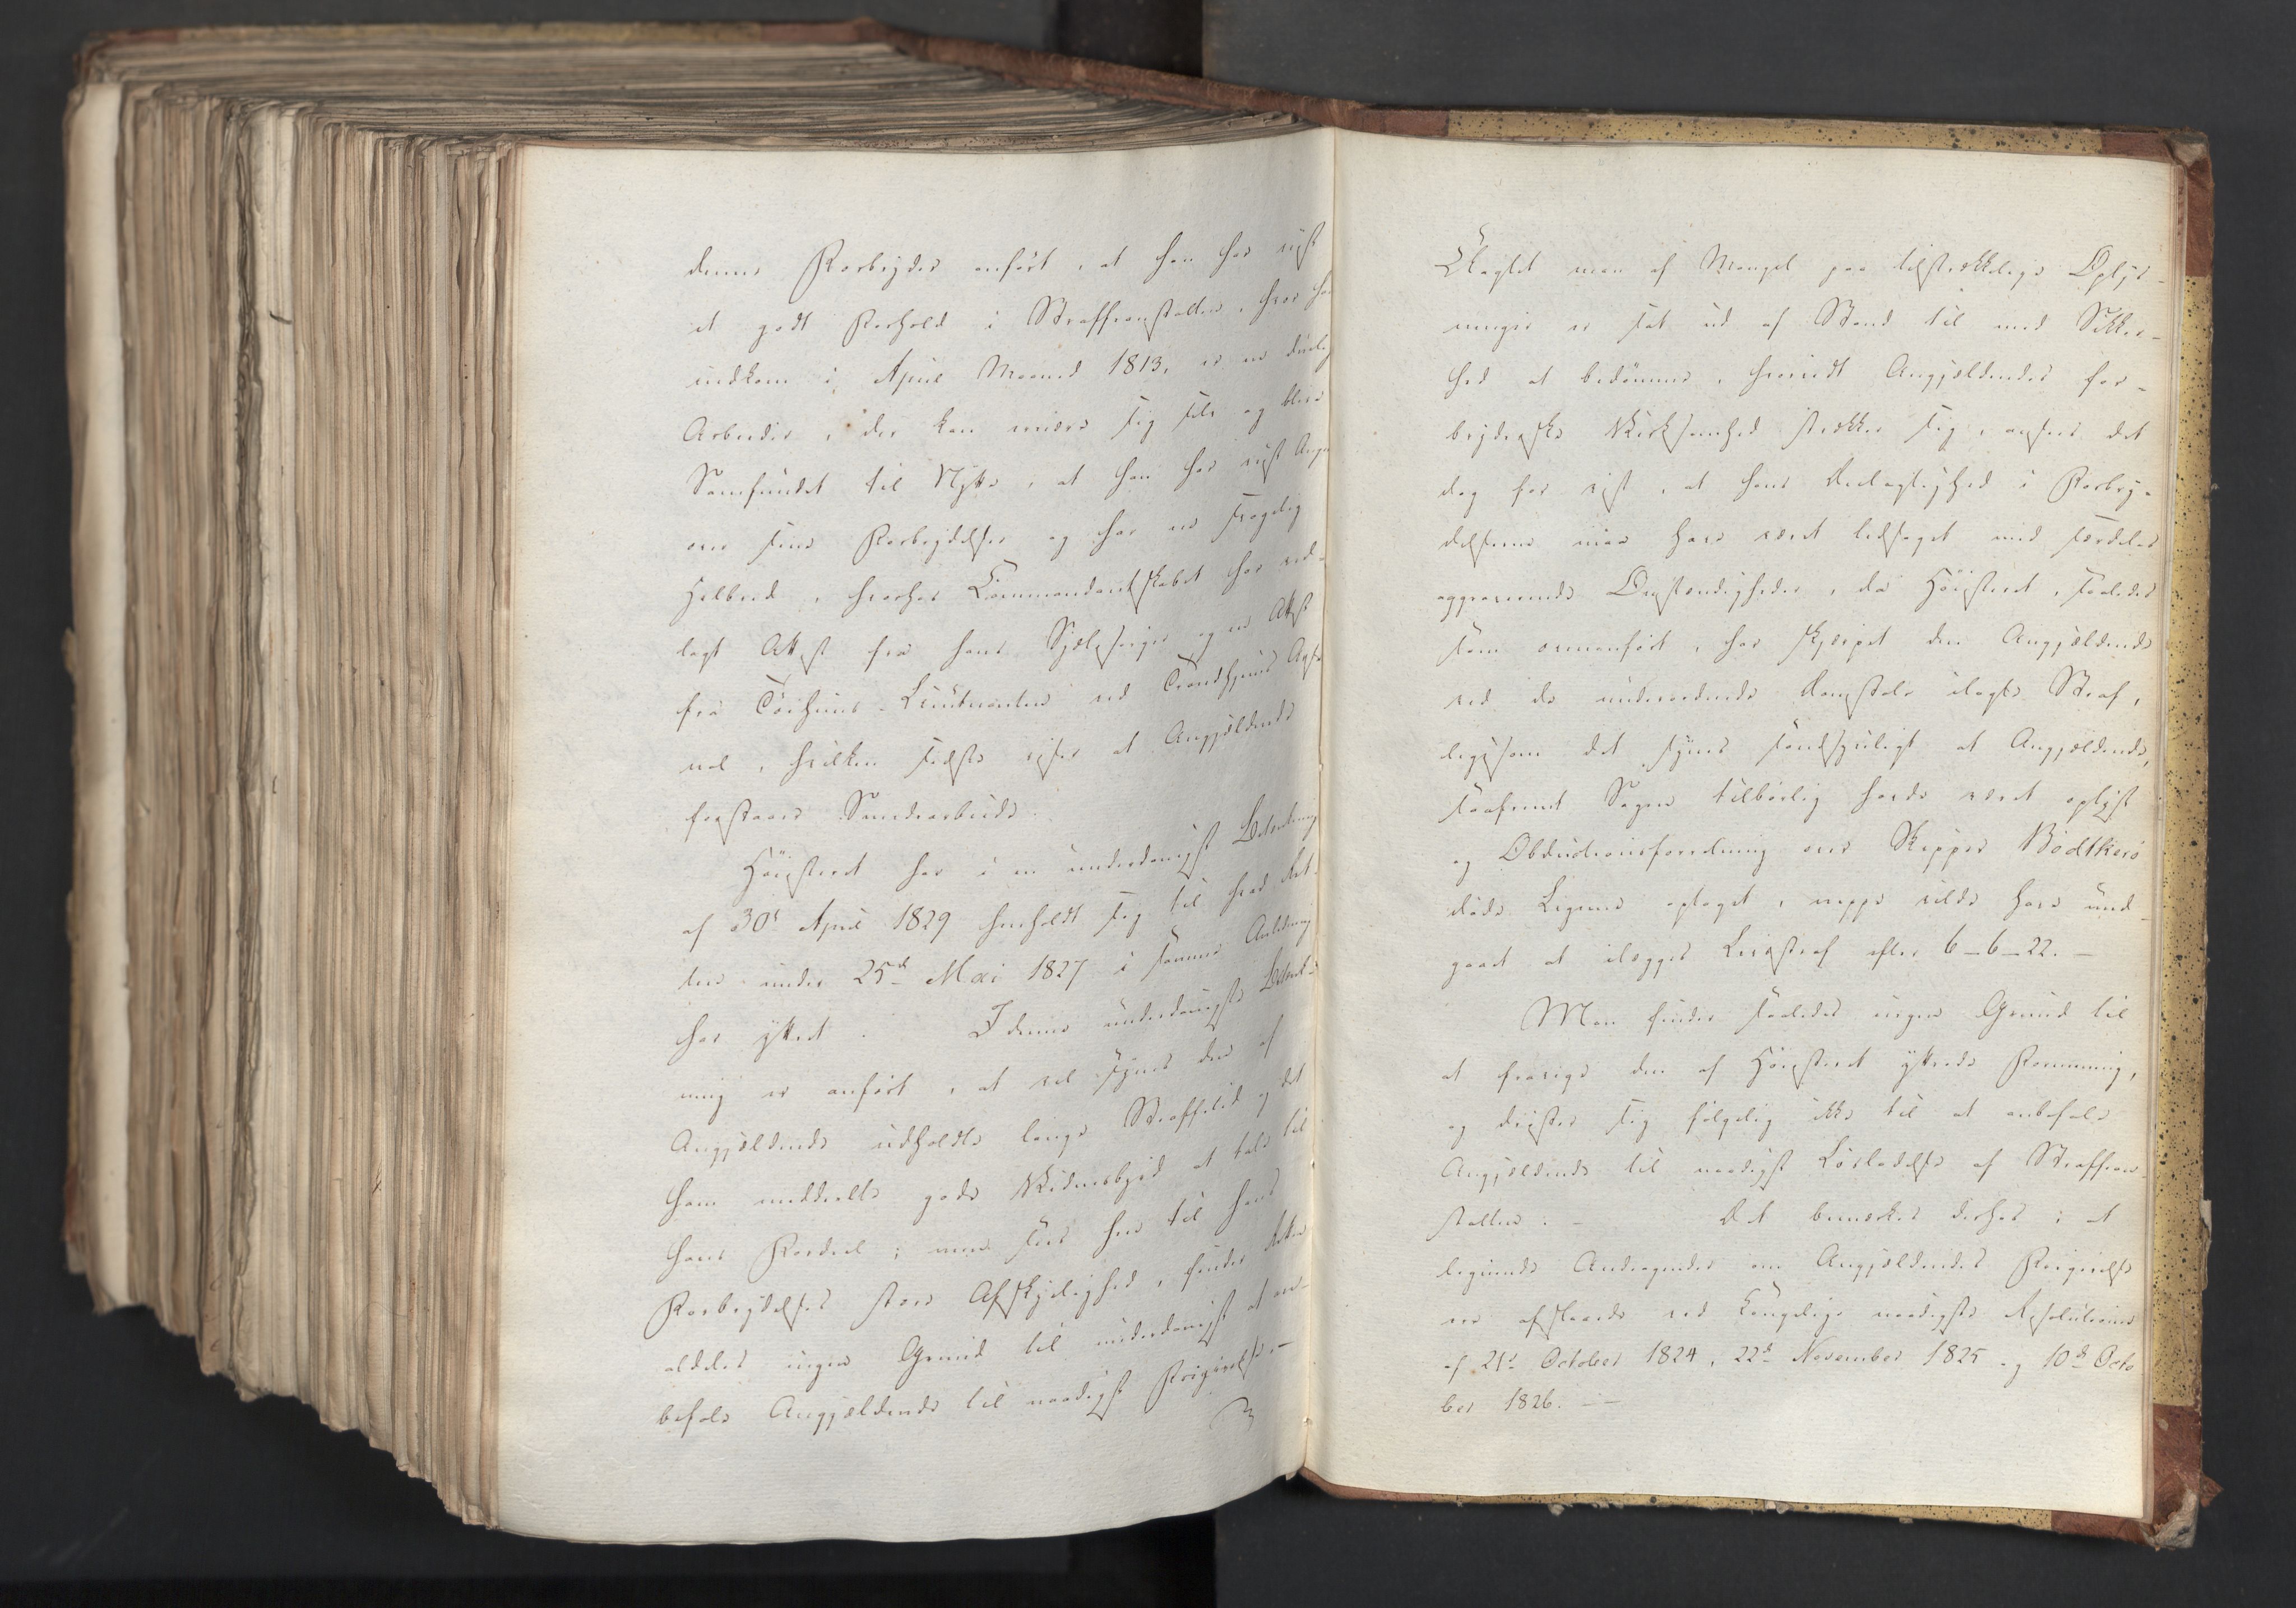 denne Forbryder anført, at han har viist
et godt Forhold i Straffeanstalten, hvor han
indkom i April Maaned 1813, er en duelig
Arbeider, der kan ernære sig selv og blive
Samfundet til Nytte, at han har viist Anger
over sine Forbrydelser og har en svagelig
Helbred, hvorhos Commandantskabet har ved-
lagt Attest fra hans Sjælesørger og en Attest
fra Tøihuus-Lieutnanten ved Trondhjems Arse-
nal, hvilken sidste viser at Angjældende
forstaaer Smedearbeide.
Høiesteret har i en underdanigst Betænkning
af 30te April 1829 henholdt sig til hvad Ret-
ten under 25de Mai 1827 i samme Anledning
har yttret. I denne underdanigste Betænk-
ning er anført, at vel synes den af
Angjældende udholdte lange Straffetid og det
ham meddeelte gode Vidnesbyrd at tale til
hans Fordeel; men seet hen til hans
Forbrydelses store Afskyelighed, finder Retten
aldeles ingen Grund til underdanigst at an-
befale Angjældende til naadigst Frigivelse. —
Uagtet man af Mangel paa tilstrækkelige Oplys-
ninger er sat ud af Stand til med Sikker-
hed at bedømme, hvorvidt Angjældendes for-
bryderske Virksomhed strækker sig, ansees det
dog for vist, at hans Deelagtighed i Forbry-
delserne maa have været ledsaget med særdeles
aggraverende Omstændigheder, da Høiesteret, saaledes
som ovenanført, har skjærpet den Angjældende
ved de underordnede Domstole ilagte Straf,
ligesom det synes sandsynligt at Angjældende,
saafremt Sagen tilbørlig havde været oplyst
og Obductionsforretning over Skipper Bødtkers
døde Legeme optaget, neppe vilde have und-
gaaet at ilægges Livsstraf efter 6-6-22. —
Man finder saaledes ingen Grund til
at fravige den af Høiesteret yttrede Formening,
og drister sig følgelig ikke til at anbefale
Angjældende til naadigst Løsladelse af Straffean-
stalten. — Det bemærkes derhos; at
lignende Andragender om Angjældendes Frigivelse
ere afslaaede ved Kongelige naadigste Resolutioner
af 21de October 1824, 22de November 1825 og 10de Octo
ber 1826. —